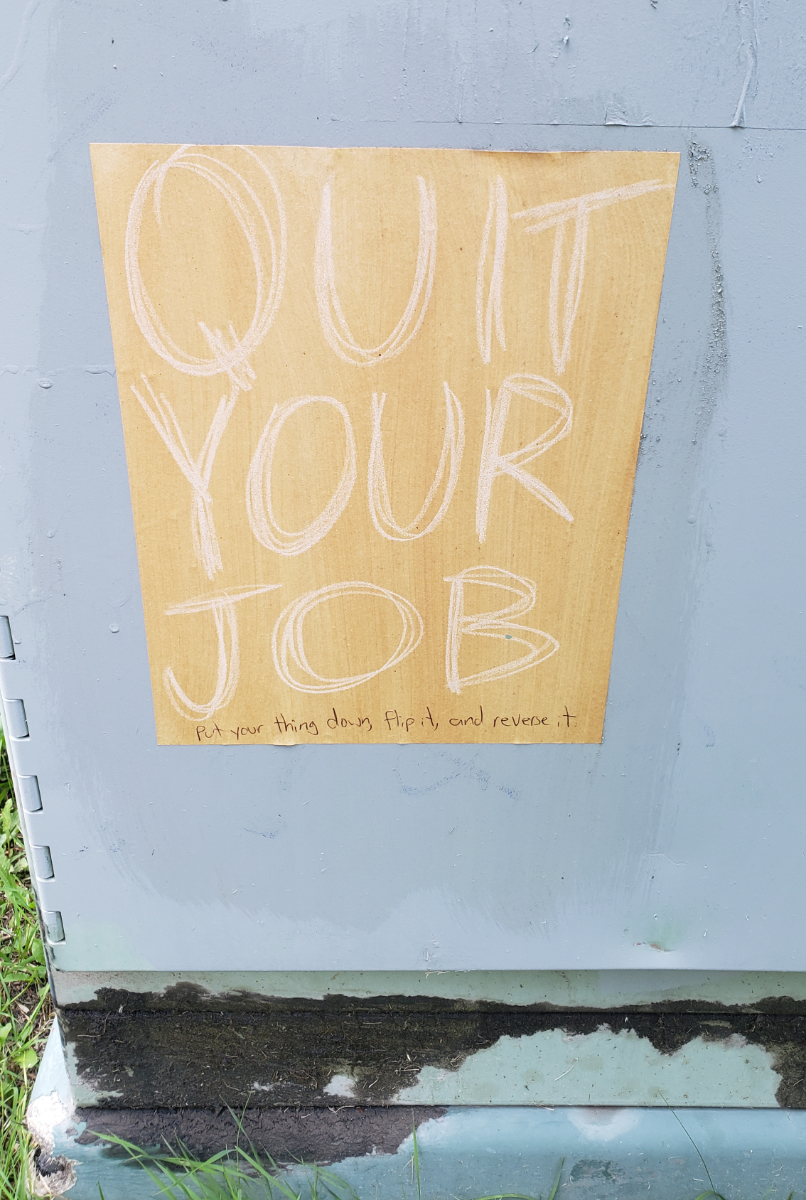 QUIT
YOUR
JOB
Put your thing down, flip it, and reverse it.